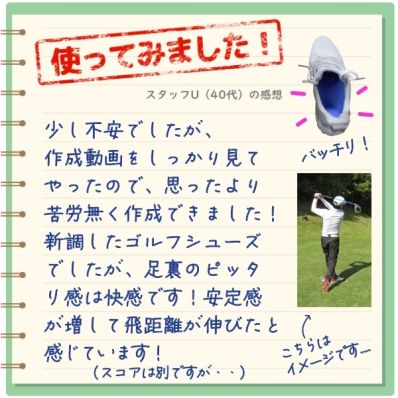 使ってみました！
スタッフU（40代）の感想
少し不安でしたが、
作成動画をしっかり見て
やったので、思ったより
苦労無く作成できました！
新調したゴルフシューズ
でしたが、足裏のピッタ
リ感は快感です！安定感
が増して飛距離が伸びたと
感じています！
（スコアは別ですが・・）
バッチリ！
こちらは
イメージです…